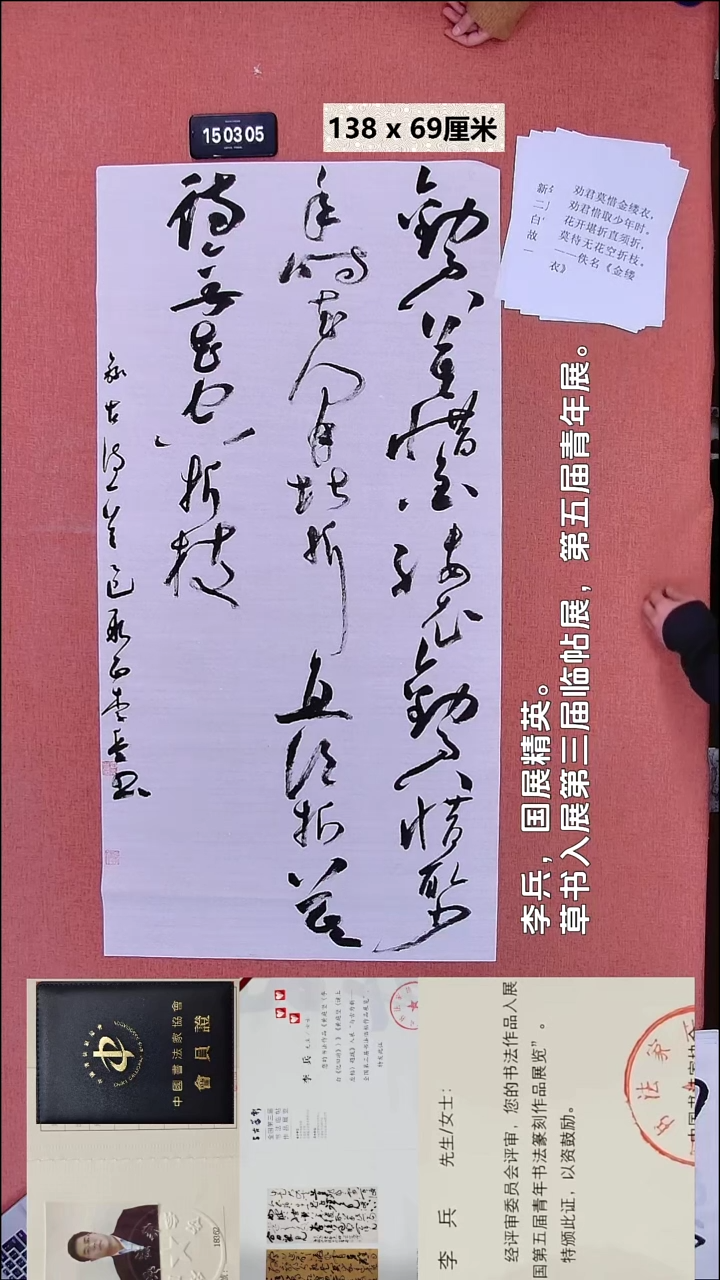 15 03 05
138 x 69厘米
勸君莫惜金縷衣勸君惜取少
年時花開堪折直須折莫
待無花空折枝
錄古詩一首
李兵書
劝君莫惜金缕衣，
劝君惜取少年时。
花开堪折直须折，
莫待无花空折枝。
——佚名《金缕
衣》
新
二
白
故
李兵，国展精英。
草书入展第三届临帖展，第五届青年展。
中國書法家協會
會員證
李 兵
全国第三届
李 兵 先生/女士：
经评审委员会评审，您的书法作品入展
国第五届青年书法篆刻作品展览”。
特颁此证，以资鼓励。
法 家